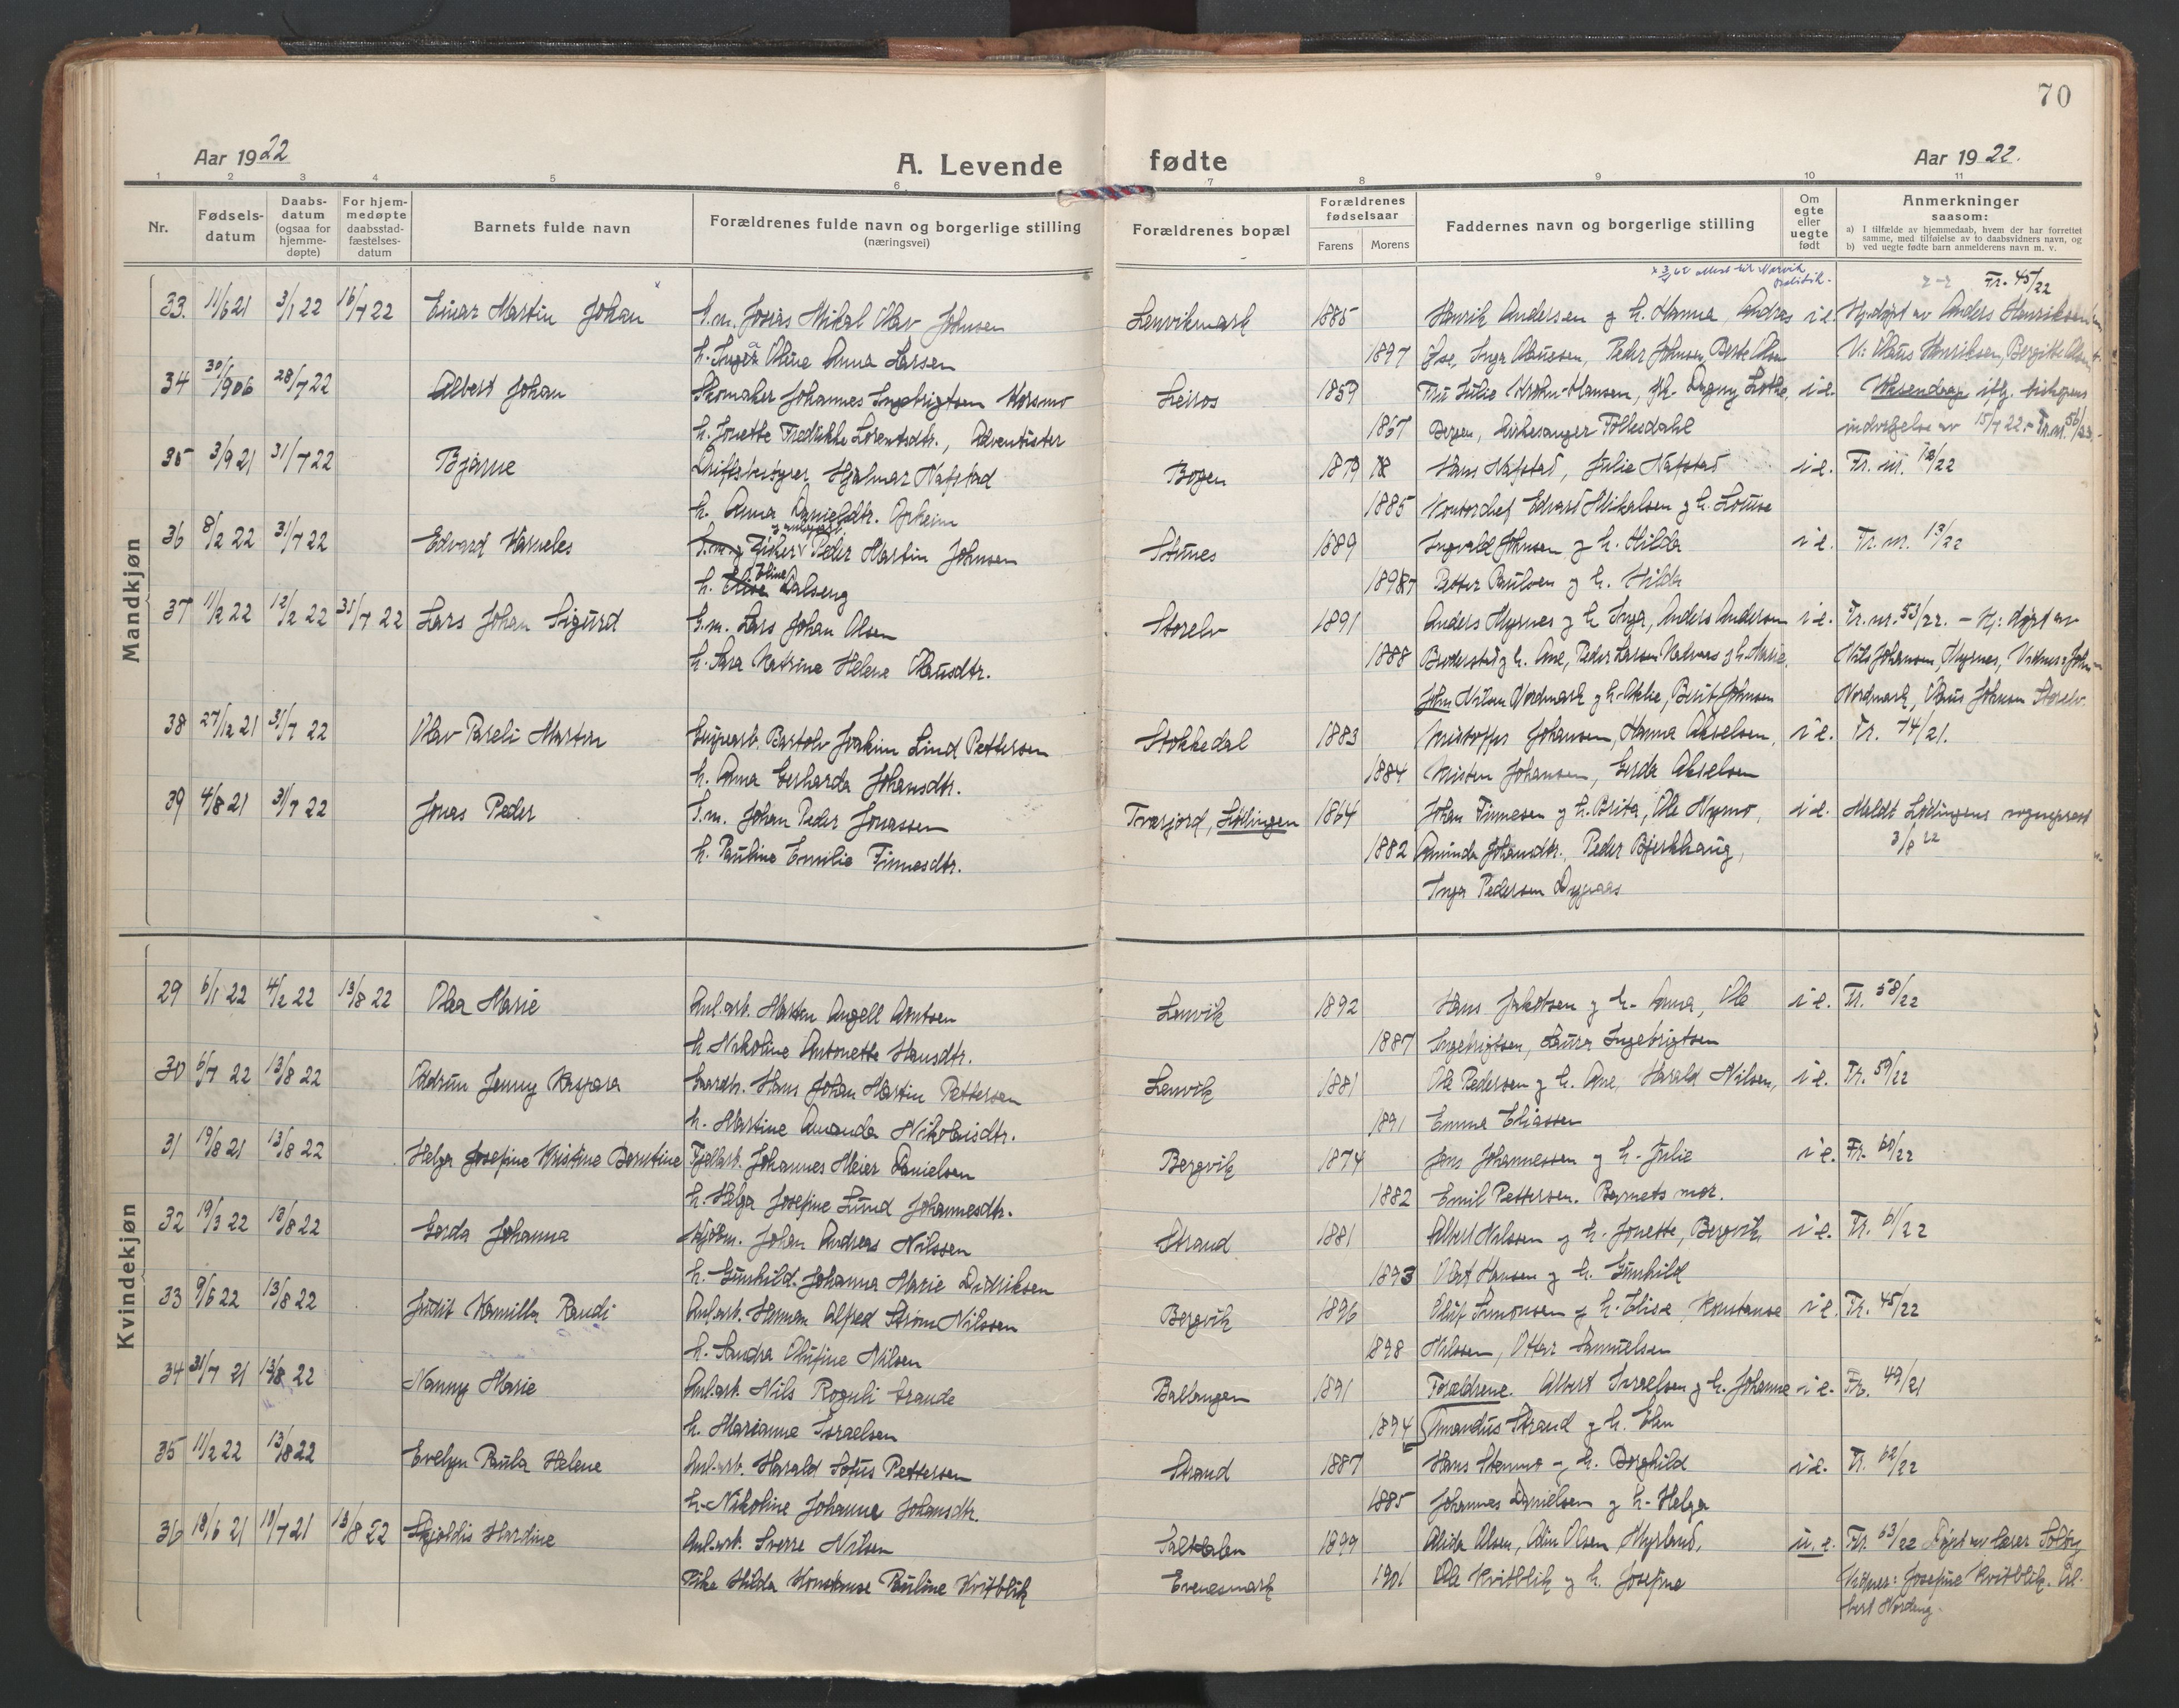 70
Aar 1922
A. Levende fødte
Aar 1922.
1 2 3 4 5 6 7 8 9 10 11
Nr.
Fødsels-
datum
Daabs-
datum
(ogsaa for
hjemme-
døpte)
For hjem-
medøpte
daabsstad-
fæstelses-
datum
Barnets fulde navn
Forældrenes fulde navn og borgerlige stilling
(næringsvei)
Forældrenes bopæl
Forældrenes
fødselsaar
Farens Morens
Faddernes navn og borgerlige stilling
Om
egte
eller
uegte
født
Anmerkninger
saasom:
a) I tilfælde av hjemmedaab, hvem der har forrettet
samme, med tilføielse av to daabsvidners navn, og
b) ved uegte fødte barn anmelderens navn m. v.
Mandkjøn
Fr. 45/22
33. 11/6 21 3/1 22 16/7 22 Einar Martin Johan G.m. Josias Mikal Olav Johnsen Lenvikmark 1885 Henrik Andersen g h. Hanna, Andreas i e. Hj.døpt av Anders Henriksen
h. Inga Oline Anna Larsen 1897 Inga Olaussen, Peder Johnsen, Berte Olsen V: Olaus Henriksen, Bergitte Olsen
34 30/1 906 28/7 22 Albert Johan Skomaker Johannes Ingebrigtsen Korsmo Leiros 1859 Fru Julie Krohn-Hansen, frk. Dagny Lothe, i e. Voksendaap iflg. biskopens
h. Jonette Fredrikke Lorentsdtr., Adventister 1867 Bergen, kirkesanger Follesdahl indvielse av 15/7 22.
35 3/9 21 31/7 22 Bjarne Driftsbestyrer Hjalmar Nafstad Bogen 1879 Hans Nafstad, Julie Nafstad i e. Fr. nr. 12/22
h. Anna Danieldtr. 1885 Kontorchef Edvard Mikalsen g h. Lovise
36 8/2 22 31/7 22 Edvard Fisker Peder Martin Johnsen 1889 Ingvald Johnsen g h. Hilda i e. Fr. nr. 13/22
h. Eline Dalseng 1897 Petter Paulsen g h. Hilda
37 11/2 22 12/2 22 31/7 22 Lars Johan Sigurd G.m. Lars Johan Olsen Storelv 1891 Anders Myrnes g h Inga, Anders Andersen i e. Fr. nr. 53/22. - Hj: døpt av
h. Sara Katrine Helene Olausdtr. 1888 g h. Ane, Peder Larsen g h. Marie, Nils Johansen, Myrnes,
John Nilsen Nordmark g h. Berit Johnsen Nordmark, Olaus Johnsen Storelv.
38 27/12 21 31/7 22 Olav Pareli Martin Bartolv Joakim Lind Pettersen Stokkedal 1883 Kristoffer Johansen, Hanna Akselsen, i e. Fr. 74/21.
h. Anna Gerharda Johansdtr. 1884 Kristen Johansen, Gerda Akselsen
39 4/8 21 31/7 22 Jonas Peder G.m. Johan Peder Jonassen Tverfjord, Lødingen 1864 Johan Finnesen g h. Berita, Ole Nymo, i e. Meldt Lødingens sogneprest
h. Pauline Emilie Finnesdtr. 1882 Aminda Johansdtr., Peder Bjerkhaug, 3/8 22
Inga Pedersen Dyppaas
Kvindekjøn
29 6/1 22 4/2 22 13/8 22 Olea Marie Anl.arb. Morten Angell Arntsen Lenvik 1892 Hans Jakobsen g h. Anna, Ole i e. Fr. 58/22
h Nikoline Antonette Hansdtr. 1887 Ingebrigtsen, Laura Ingebrigtsen
30 6/7 22 13/8 22 Oddrun Jenny Kaspara Hans Johan Martin Pettersen Lenvik 1881 Ole Pedersen g h. Ane, Harald Nilsen, i e. Fr. 59/22
h. Martine Amanda Nikolaisdtr. 1891 Emma Eliassen
31 19/8 21 13/8 22 Helga Josefine Kristine Dorntine Johannes Meier Danielsen Bergvik 1874 Jens Johannessen g h. Julie i e. Fr. 60/22
h. Helga Josefine Lund Johannesdtr. 1882 Emil Pettersen. Barnets mor.
32 19/3 22 13/8 22 Gerda Johanna Johan Andreas Nilssen Strand 1881 Albert Nilssen g h. Jonette, Bergvik, i e. Fr. 61/22
h. Gunhild Johanna Marie Didriksen 1893 Olaf Hansen g h. Gunhild
33 9/6 22 13/8 22 Judit Kamilla Randi Anl.arb. Herman Alfred Strøm Nilssen Bergvik 1896 Oluf Simonsen g h. Elise, Konstanse i e. Fr. 45/22
h. Sandra Olufine Nilsen 1898 Nilssen, Ottar Samuelsen
34 31/7 21 13/8 22 Nanny Marie Anl.arb. Nils Roguli Grande Ballangen 1891 Forældrene. Albert Israelsen g h. Johanna i e. Fr. 49/21
h. Marianne Israelsen 1894 Amandus Strand g h. Elen
35 11/2 22 13/8 22 Evelyn Paula Helene Anl.arb. Harald Sofus Pettersen Strand 1887 Hans Stenmo g h. Borghild i e. Fr. 62/22
h. Nikoline Johanne Johansdtr. 1885 Johannes Danielsen g h. Helga
36 18/6 21 10/7 21 13/8 22 Skjoldis Hardine Anl.arb. Sverre Nilsen 1899 Alida Olsen, Olsen Myrland, u. e. Fr. 63/22 Døpt av lærer Solberg
Pike Hilda Konstanse Pauline Kvitblik Evenesmark 1901 Ole Kvitblik g h. Josefine Vidner: Josefine Kvitblik. Al-
bert Nordeng.